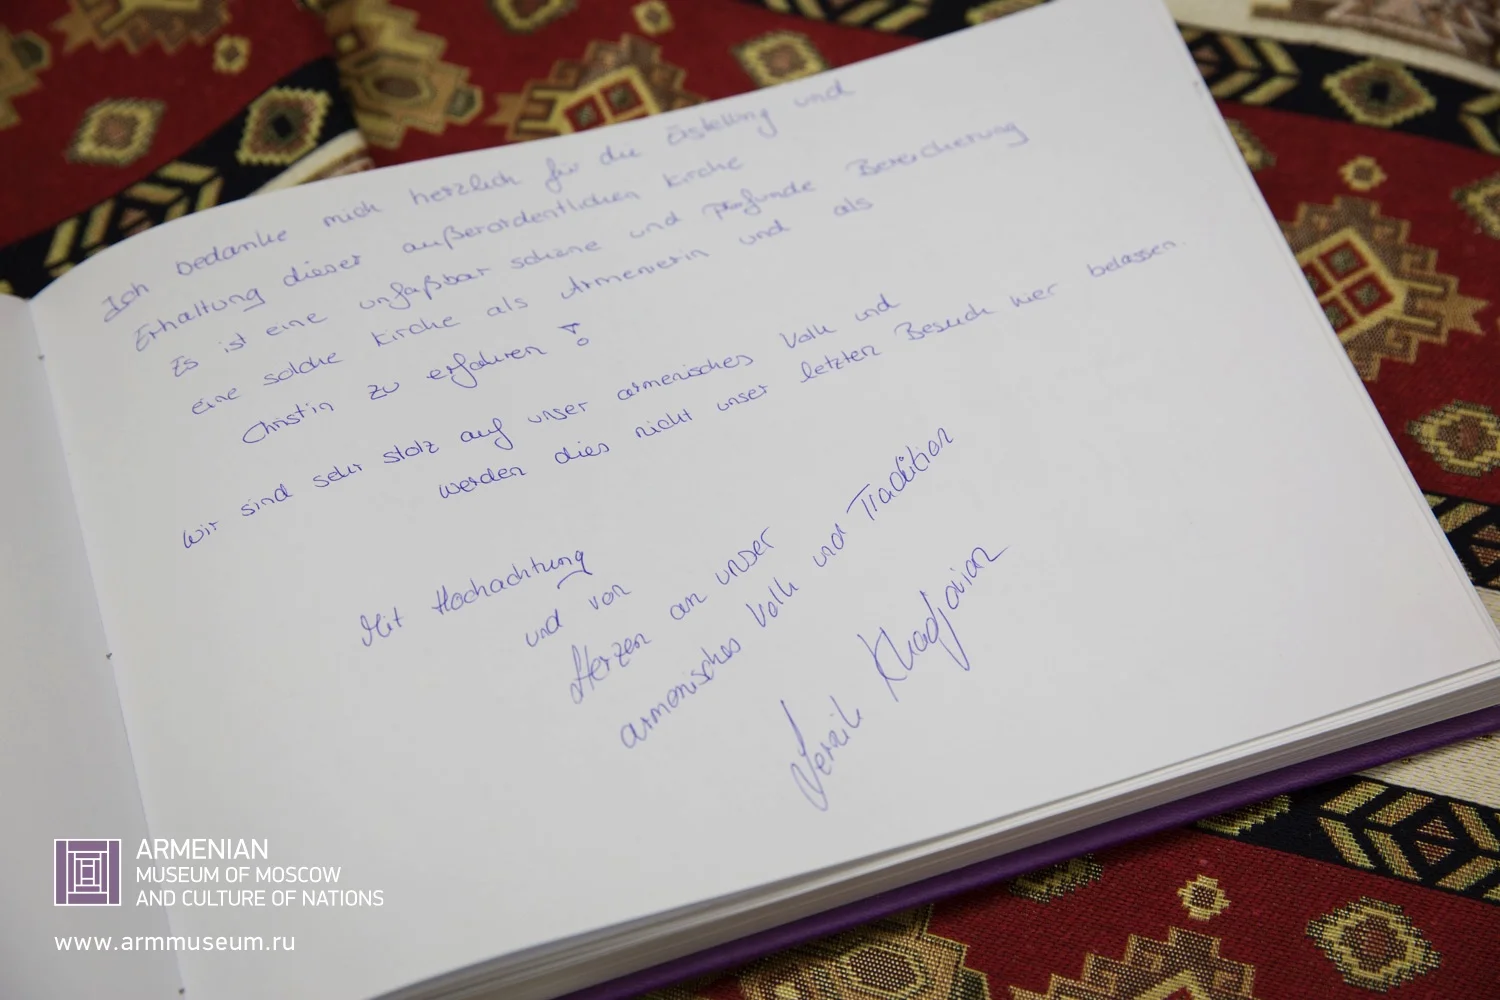 Ich bedanke mich herzlich für die Erstellung und
Erhaltung dieser außerordentlichen Kirche
Es ist eine unfaßbar schöne und profunde Bereicherung
eine solche Kirche als Armenierin und als
Christin zu erfahren!
Wir sind sehr stolz auf unser armenisches Volk und
werden dies nicht unser letzten Besuch hier belassen.
Mit Hochachtung
und von
Herzen an unser
armenisches Volk und Tradition
Khadjavian
ARMENIAN
MUSEUM OF MOSCOW
AND CULTURE OF NATIONS
www.armmuseum.ru